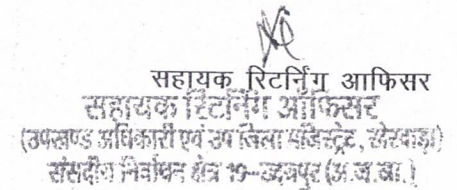 सहायक रिटर्निंग आफिसर
सहायक रिटर्निंग ऑफिसर
(उपखण्ड अधिकारी एवं उप जिला मजिस्ट्रेट, खेरवाड़ा)
संसदीय निर्वाचन क्षेत्र 19-उदयपुर (अ.ज.जा.)